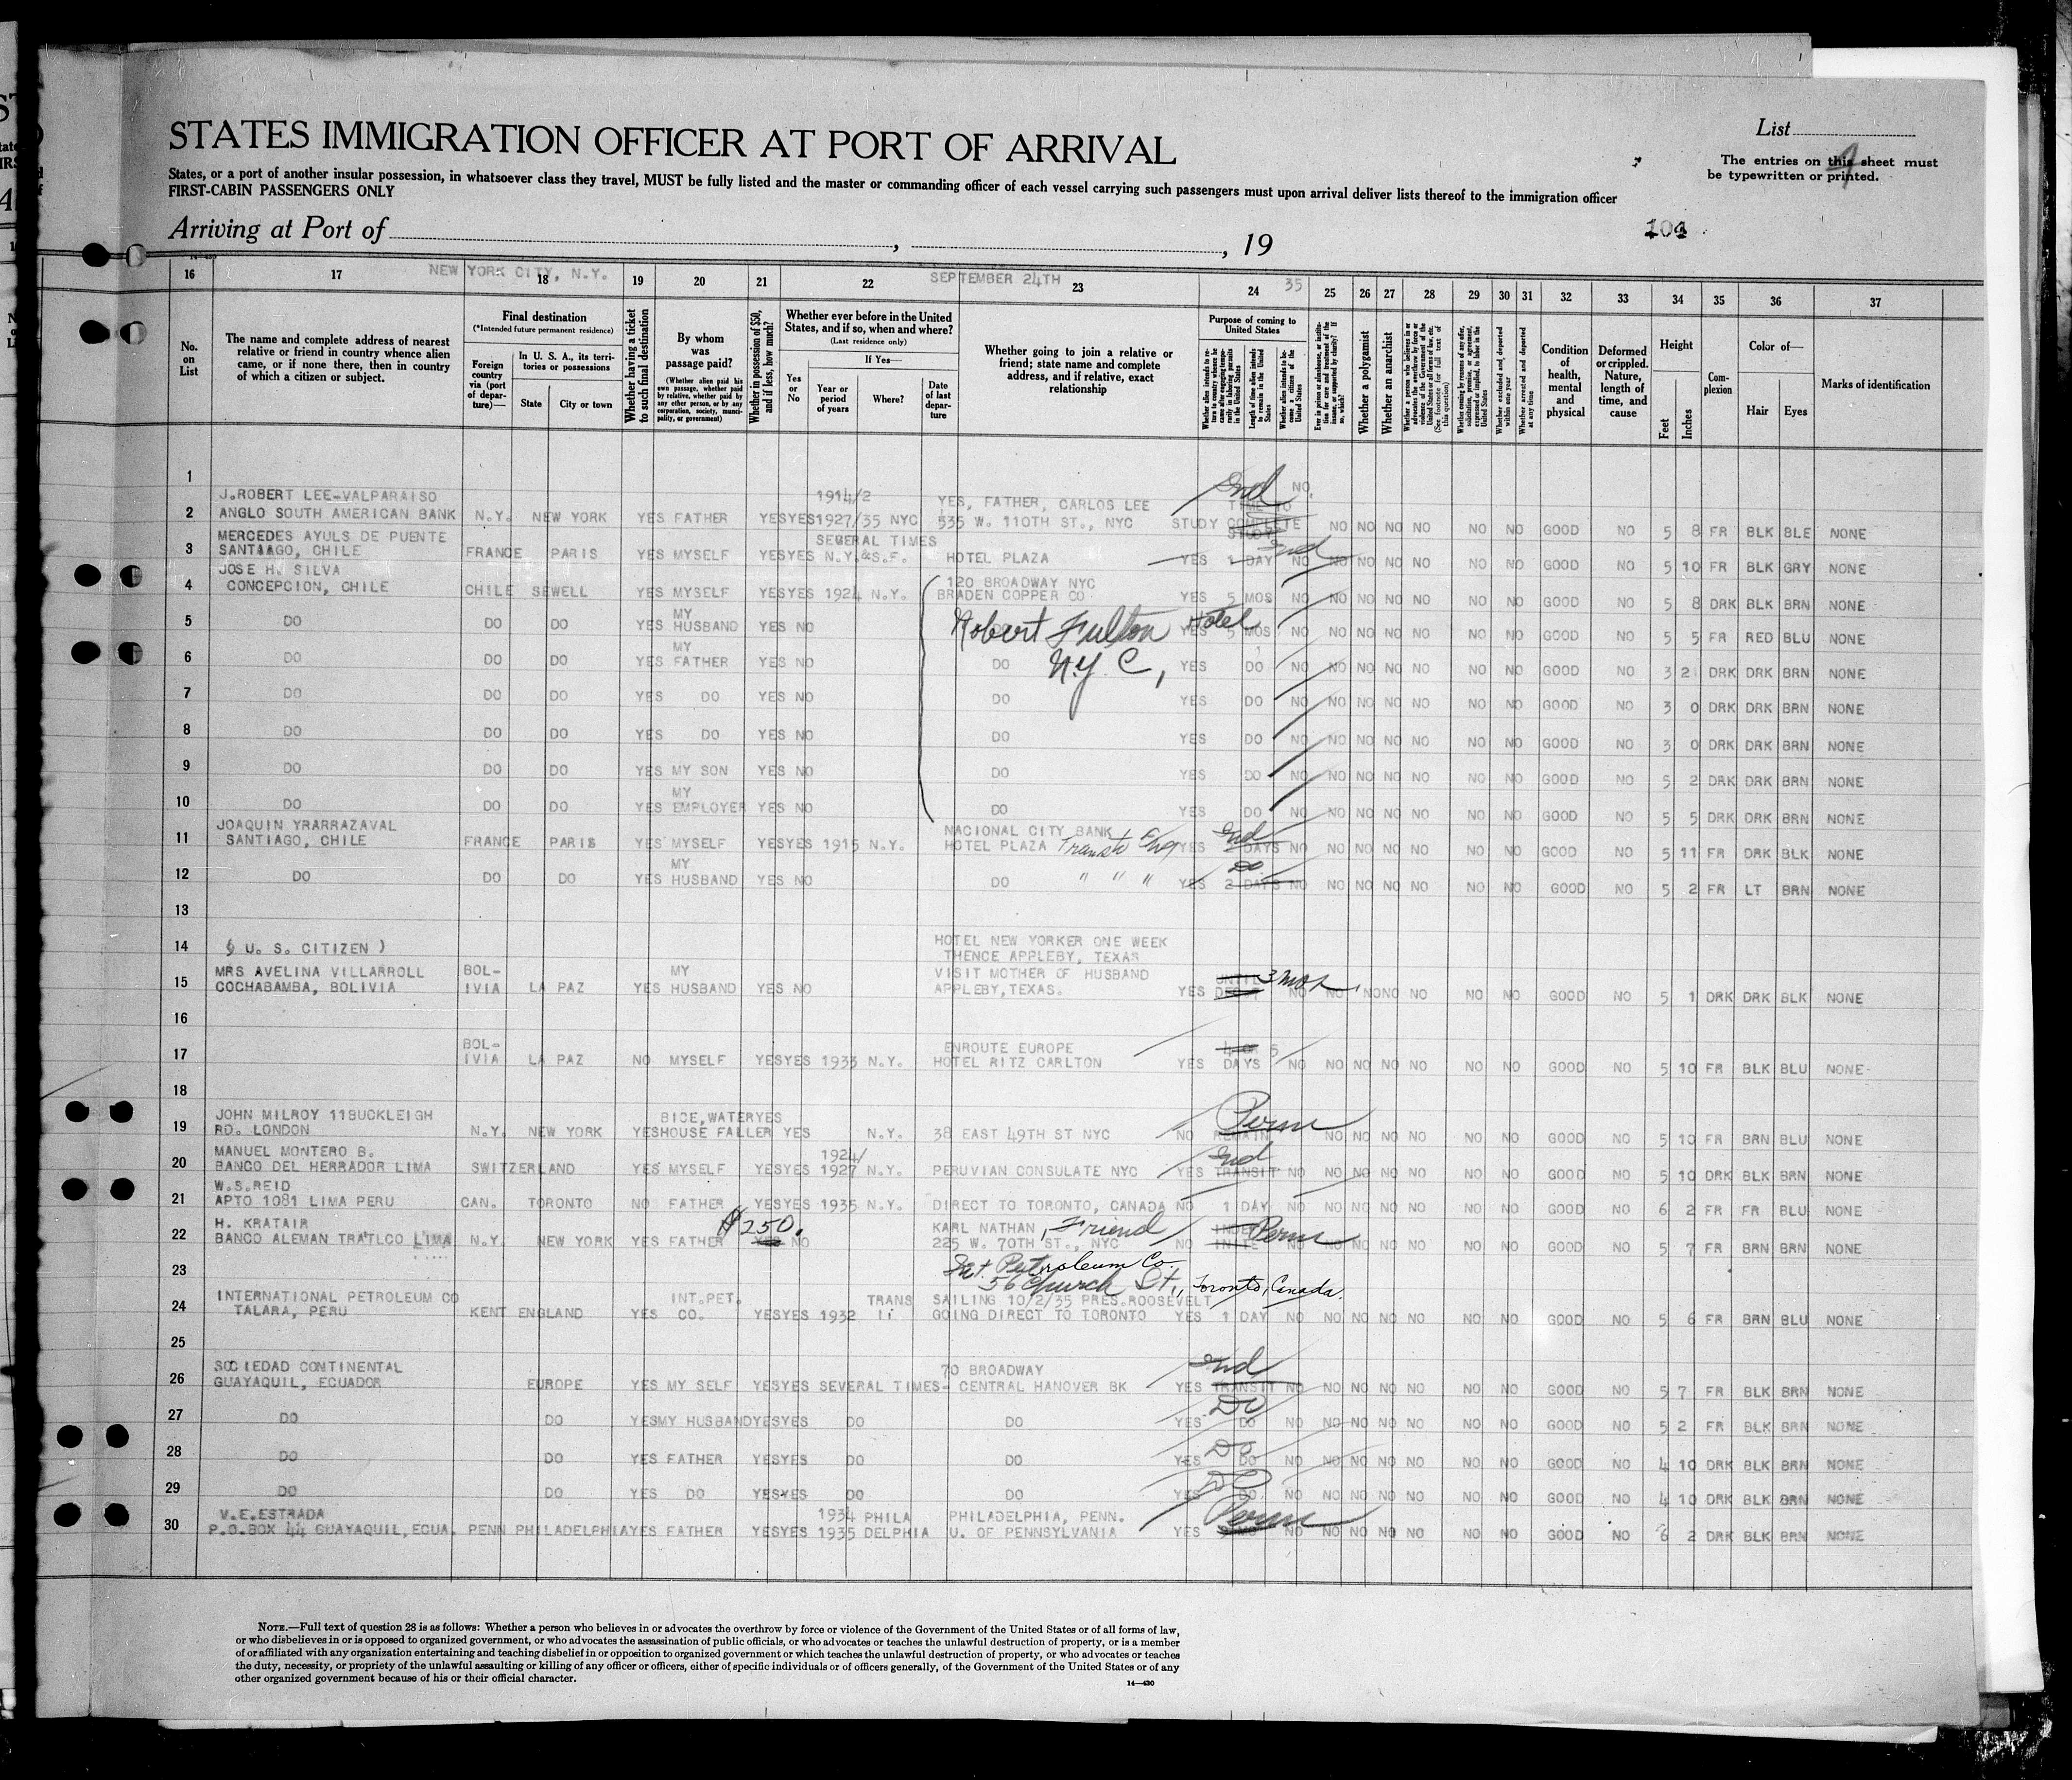 STATES IMMIGRATION OFFICER AT PORT OF ARRIVAL
List
The entries on this sheet must
be typewritten or printed.
States, or a port of another insular possession, in whatsoever class they travel, MUST be fully listed and the master or commanding officer of each vessel carrying such passengers must upon arrival deliver lists thereof to the immigration officer
FIRST-CABIN PASSENGERS ONLY
Arriving at Port of , , 19
NEW YORK CITY, N.Y. SEPTEMBER 24TH 35
16 17 18 19 20 21 22 23 24 25 26 27 28 29 30 31 32 33 34 35 36 37
No. on List
The name and complete address of nearest relative or friend in country whence alien came, or if none there, then in country of which a citizen or subject.
Final destination
(*Intended future permanent residence)
Foreign country via (port of departure)—
In U. S. A., its territories or possessions
State City or town
Whether having a ticket to such final destination
By whom was passage paid?
(Whether alien paid his own passage, whether paid by relative, whether paid by any other person, or by any corporation, society, municipality, or government)
Whether in possession of $50, and if less, how much?
Whether ever before in the United States, and if so, when and where?
(Last residence only)
Yes or No
If Yes—
Year or period of years Where? Date of last departure
Whether going to join a relative or friend; state name and complete address, and if relative, exact relationship
Purpose of coming to United States
Length of time alien intends to remain in the United States
Whether alien intends to become a citizen of the United States
Whether a polygamist
Whether an anarchist
Whether excluded and deported within one year
Whether arrested and deported at any time
Condition of health, mental and physical
Deformed or crippled. Nature, length of time, and cause
Height
Feet Inches
Complexion
Color of—
Hair Eyes
Marks of identification
1
2 J.ROBERT LEE-VALPARAISO 1914/2 YES, FATHER, CARLOS LEE Ind NO
ANGLO SOUTH AMERICAN BANK N.Y. NEW YORK YES FATHER YESYES1927/35 NYC 535 W. 110TH ST., NYC STUDY TIME TO COMPLETE STUDY NO NO NO NO NO NO GOOD NO 5 8 FR BLK BLE NONE
3 MERCEDES AYULS DE PUENTE SEBERAL TIMES
SANTIAGO, CHILE FRANCE PARIS YES MYSELF YESYES N.Y.&S.F. HOTEL PLAZA YES 1 DAY NO NO NO NO NO NO NO GOOD NO 5 10 FR BLK GRY NONE
4 JOSE H. SILVA 120 BROADWAY NYC
CONCEPCION, CHILE CHILE SEWELL YES MYSELF YESYES 1924 N.Y. BRADEN COPPER CO YES 5 MOS NO NO NO NO NO NO NO GOOD NO 5 8 DRK BLK BRN NONE
5 DO DO DO YES MY HUSBAND YES NO Robert Fulton Hotel YES 5 MOS NO NO NO NO NO NO NO GOOD NO 5 5 FR RED BLU NONE
6 DO DO DO YES MY FATHER YES NO DO N.Y.C, YES DO NO NO NO NO NO NO NO GOOD NO 3 2 DRK DRK BRN NONE
7 DO DO DO YES DO YES NO DO YES DO NO NO NO NO NO NO NO GOOD NO 3 0 DRK DRK BRN NONE
8 DO DO DO YES DO YES NO DO YES DO NO NO NO NO NO NO NO GOOD NO 3 0 DRK DRK BRN NONE
9 DO DO DO YES MY SON YES NO DO YES DO NO NO NO NO NO NO NO GOOD NO 5 2 DRK DRK BRN NONE
10 DO DO DO YES MY EMPLOYER YES NO DO YES DO NO NO NO NO NO NO NO GOOD NO 5 5 DRK DRK BRN NONE
11 JOAQUIN YRARRAZAVAL NACIONAL CITY BANK Ind
SANTIAGO, CHILE FRANCE PARIS YES MYSELF YESYES 1915 N.Y. HOTEL PLAZA Transit Eng YES DAYS NO NO NO NO NO NO NO GOOD NO 5 11 FR DRK BLK NONE
12 DO DO DO YES MY HUSBAND YES NO DO " " " YES Do 2 DAYS NO NO NO NO NO NO NO GOOD NO 5 2 FR LT BRN NONE
13
14 ( U. S. CITIZEN ) HOTEL NEW YORKER ONE WEEK
THENCE APPLEBY, TEXAS
15 MRS AVELINA VILLARROLL BOL- MY VISIT MOTHER OF HUSBAND
COCHABAMBA, BOLIVIA IVIA LA PAZ YES HUSBAND YES NO APPLEBY,TEXAS. YES UNTIL 3 mos, NO NO NONO NO NO NO GOOD NO 5 1 DRK DRK BLK NONE
16
17 BOL- ENROUTE EUROPE 5
IVIA LA PAZ NO MYSELF YESYES 1933 N.Y. HOTEL RITZ CARLTON YES DAYS NO NO NO NO NO NO NO GOOD NO 5 10 FR BLK BLU NONE-
18
19 JOHN MILROY 11BUCKLEIGH BICE,WATERYES Perm
RD. LONDON N.Y. NEW YORK YESHOUSE FALLER YES N.Y. 38 EAST 49TH ST NYC NO REMAIN NO NO NO NO NO NO GOOD NO 5 10 FR BRN BLU NONE
20 MANUEL MONTERO B. 1924/ Ind
BANCO DEL HERRADOR LIMA SWITZERLAND YES MYSELF YESYES 1927 N.Y. PERUVIAN CONSULATE NYC YES TRANSIT NO NO NO NO NO NO NO GOOD NO 5 10 DRK BLK BRN NONE
21 W.S.REID
APTO 1081 LIMA PERU CAN. TORONTO NO FATHER YESYES 1935 N.Y. DIRECT TO TORONTO, CANADA NO 1 DAY NO NO NO NO NO NO NO GOOD NO 6 2 FR FR BLU NONE
22 H. KRATAIR $250. KARL NATHAN, Friend Perm
BANCO ALEMAN TRATLCO LIMA N.Y. NEW YORK YES FATHER YES NO 225 W. 70TH ST., NYC NO NO NO NO NO NO NO GOOD NO 5 7 FR BRN BRN NONE
23 Int. Petroleum Co.
56 Church St., Toronto, Canada.
24 INTERNATIONAL PETROLEUM CO INT.PET. TRANS SAILING 10/2/35 PRES.ROOSEVELT
TALARA, PERU KENT ENGLAND YES CO. YESYES 1932 GOING DIRECT TO TORONTO YES 1 DAY NO NO NO NO NO NO NO GOOD NO 5 6 FR BRN BLU NONE
25
26 SOCIEDAD CONTINENTAL 70 BROADWAY Ind
GUAYAQUIL, ECUADOR EUROPE YES MY SELF YESYES SEVERAL TIMES- CENTRAL HANOVER BK YES TRANSIT NO NO NO NO NO NO NO GOOD NO 5 7 FR BLK BRN NONE
27 DO DO YESMY HUSBANDYESYES DO DO YES DO DO NO NO NO NO NO NO NO GOOD NO 5 2 FR BLK BRN NONE
28 DO DO YES FATHER YESYES DO DO YES DO DO NO NO NO NO NO NO NO GOOD NO 4 10 DRK BLK BRN NONE
29 DO DO YES DO YESYES DO DO YES DO DO NO NO NO NO NO NO NO GOOD NO 4 10 DRK BLK BRN NONE
30 V.E.ESTRADA 1934 PHILA PHILADELPHIA, PENN. Perm
P.O.BOX 44 GUAYAQUIL,ECUA. PENN PHILADELPHIAYES FATHER YESYES 1935 DELPHIA U. OF PENNSYLVANIA YES NO NO NO NO NO NO NO GOOD NO 6 2 DRK BLK BRN NONE
NOTE.—Full text of question 28 is as follows: Whether a person who believes in or advocates the overthrow by force or violence of the Government of the United States or of all forms of law,
or who disbelieves in or is opposed to organized government, or who advocates the assassination of public officials, or who advocates or teaches the unlawful destruction of property, or is a member
of or affiliated with any organization entertaining and teaching disbelief in or opposition to organized government or which teaches the unlawful destruction of property, or who advocates or teaches
the duty, necessity, or propriety of the unlawful assaulting or killing of any officer or officers, either of specific individuals or of officers generally, of the Government of the United States or of any
other organized government because of his or their official character.
14—430